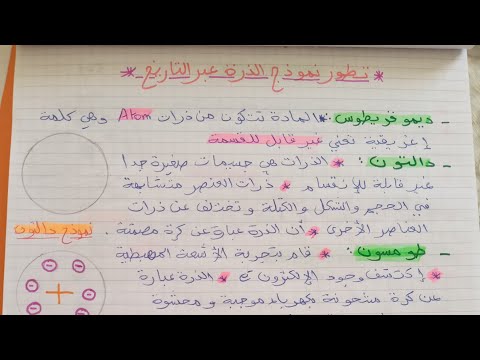 * تطور نموذج الذرة عبر التاريخ *
- ديموقريطوس: المادة تتكون من ذرات Atom وهي كلمة
إغريقية تعني غير قابل للقسمة
- دالتون: * الذرات هي جسيمات صغيرة جدا
غير قابلة للإنقسام * ذرات العنصر متشابهة
في الحجم والشكل والكتلة وتختلف عن ذرات
العناصر الأخرى * أن الذرة عبارة عن كرة مصمتة.
نموذج دالتون
- طومسون: * قام بتجربة الأشعة المهبطية
* إكتشف وجود الإلكترون e * الذرة عبارة
عن كرة مشحونة بكهرباء موجبة و محشوة